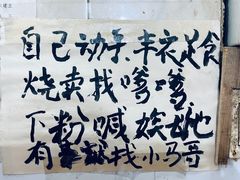 自己动手.丰衣足食
烧卖找嗲嗲
下粉喊娭毑
有事就找小马哥